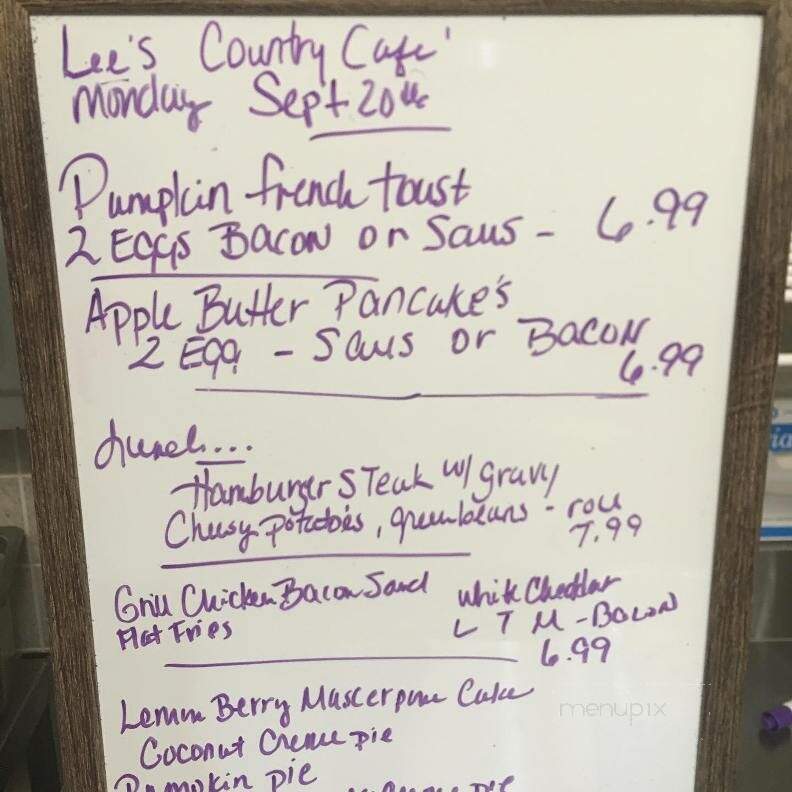 Lee's Country Cafe'
Monday Sept 20th
Pumpkin french toast
2 Eggs Bacon or Saus - 6.99
Apple Butter Pancake's
2 Egg - Saus or Bacon
6.99
Lunch...
Hamburger Steak w/ gravy
Cheesy potatoes, greenbeans - roll
7.99
Grill Chicken Bacon Sand White Cheddar
Flat Fries L T M - Bacon
6.99
Lemon Berry Mascerpone Cake
menupix
Coconut Creme pie
Pumpkin pie
pie